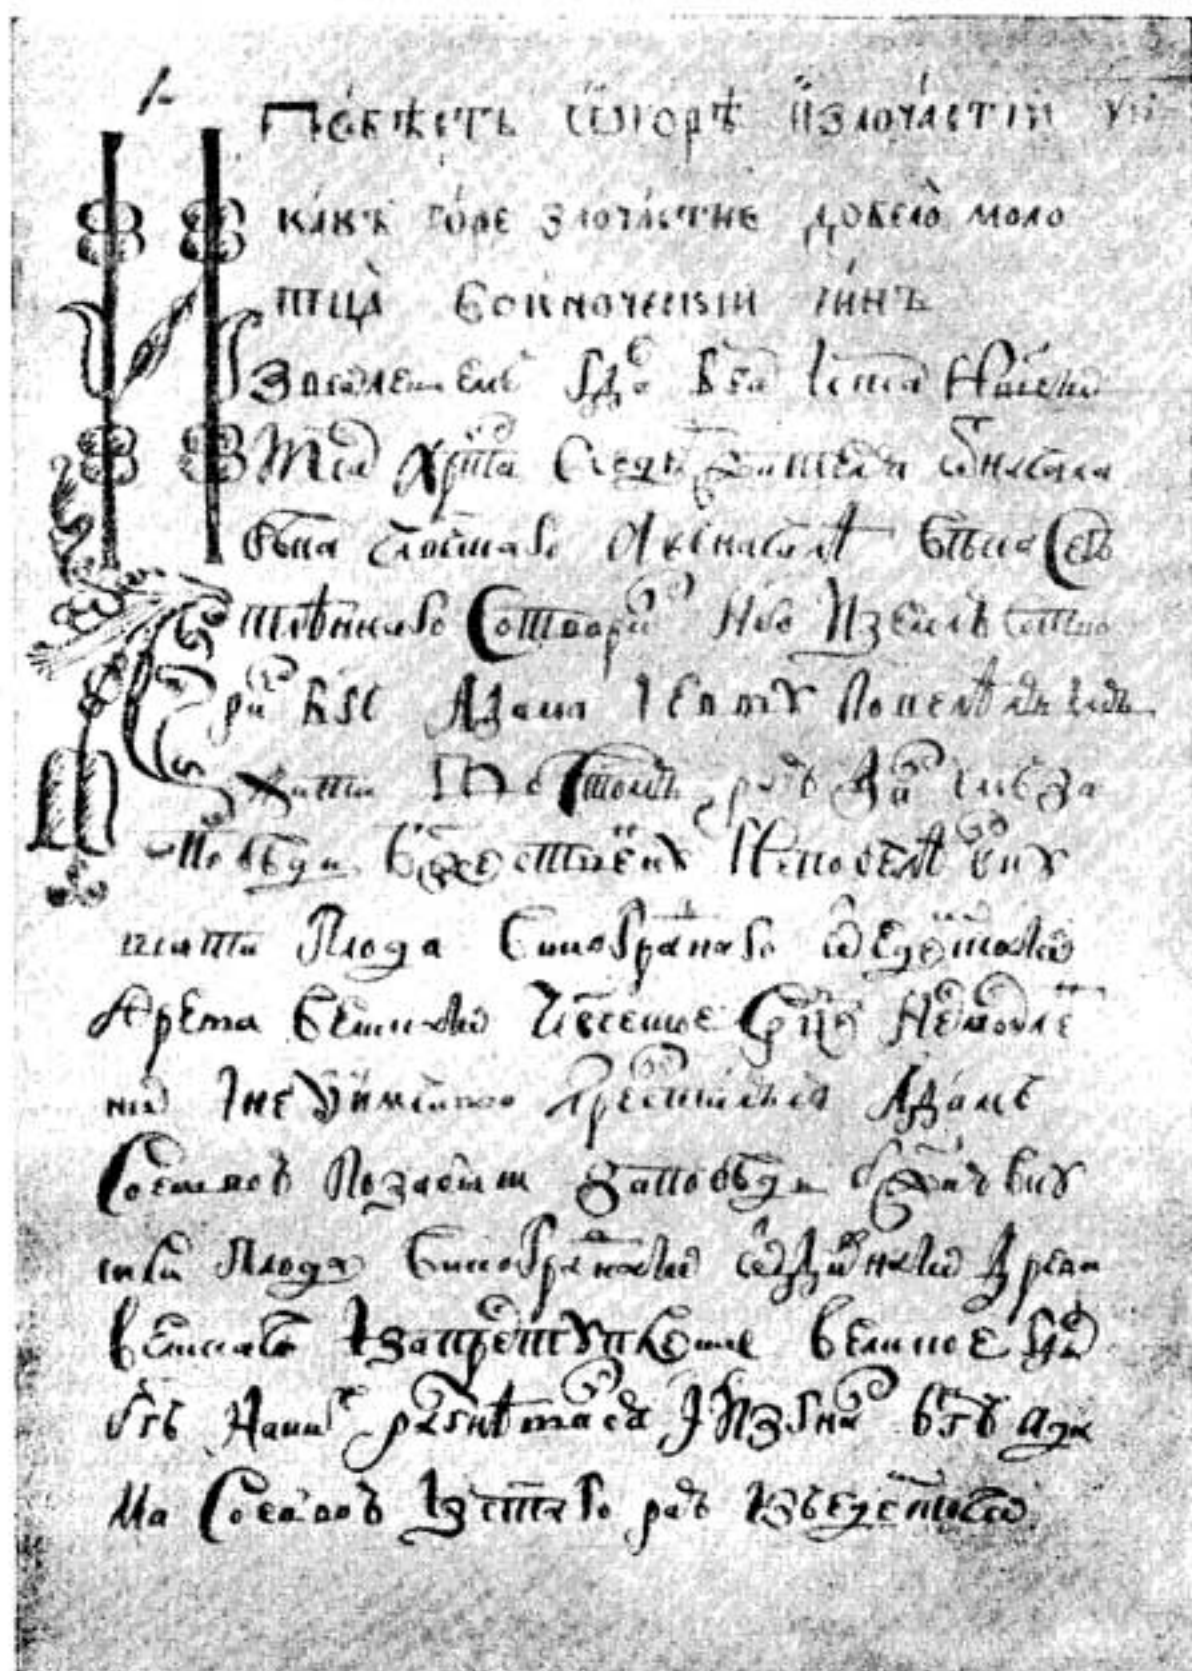 Повѣсть ѡ горѣ и злочастіи
какъ горе злочастие довело моло
тца во иноческіи чинъ
Зволениемъ гда бга i спса нашего
Iса хрта вседержителя ѿ начала
века члвческаго А в началѣ века сего
тлѣннаго Сотворил нбо и землю сотво
рил бгъ Адама i Евву повелѣл имъ
жити во святомъ раю дал имъ за
повѣдь бжственну Не повелѣл вку
шати плода винограднаго ѿ едемскаго
древа великаго Члвческое срдце несмысле
нно i неуимчиво прелстилъся Адамъ
Со Еввою позабыли заповѣдь бжию вку
сили плода винограднаго ѿ дивнаго древа
великаго I за преступление великое гдь
бгъ на них разгнѣвался I изгнал бгъ Ада
ма Со Еввою Iз стаго раю изъ едемскаго